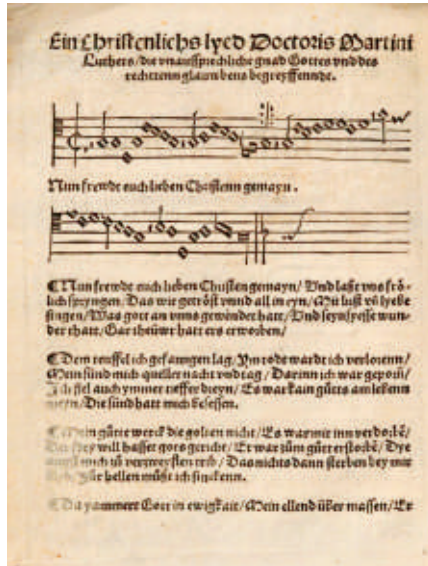 Ein Christenlichs lyed Doctoris Martini
Luthers/die vnaussprechliche gnad Gottes vnd des
rechtenn glawbens begreyffennde.
Nun frewdt euch lieben Christenn gemayn.
Nun frewdt euch lieben Christen gemayn/ Vnd laßt vns frö-
lich spryngen. Das wir getröst vnnd all in eyn/ Mit lust vñ lyebe
singen/Was got an vnns gewendet hatt/Vnd seyn süesse wun
der thatt/Gar theüwr hatt ers erworben/
Dem teuffel ich gefangen lag/Ym tode wardt ich verlorenn/
Mein sünd mich queller nacht vnd tag/ Darinn ich war geporn/
Ich fiel auch ymmer tieffer dreyn/ Es war kain gůtts am lebenn
meyn/Die sünd hatt mich besessen.
Mein gůtte werck die golten nicht/Es war mir inn verdorbē/
Der frey will hasset gots gericht/ Er war zům gůtt erstorbē/ Dye
angst mich zů verzweyflen treib/ Das nichts dann sterben bey mir
bleyb/Zůr hellen můßt ich sinckenn.
Da yammert Gott in ewigkait/Mein ellend über massen/Er